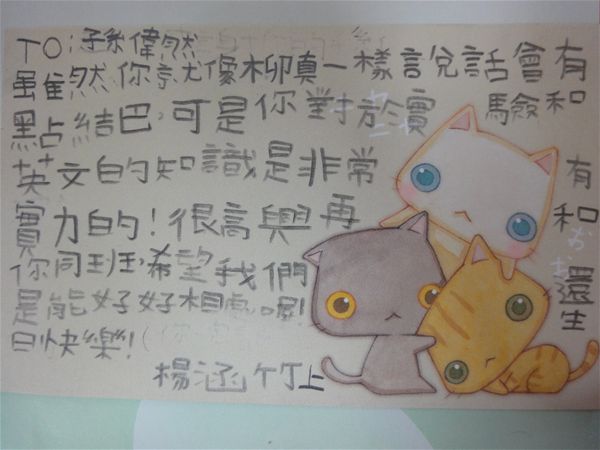 TO:孫偉然
雖然,你就像柳真一樣說話會有
點結巴,可是你對於實驗和
英文的知識是非常有
實力的!很高興再和
你同班,希望我們還
是能好好相處喔!生
日快樂!
楊涵竹上